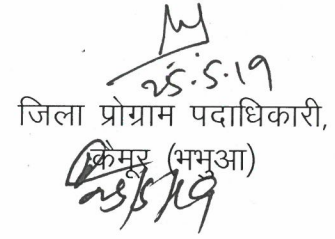 25.5.19
जिला प्रोग्राम पदाधिकारी,
कैमूर (भभुआ)
25/5/19